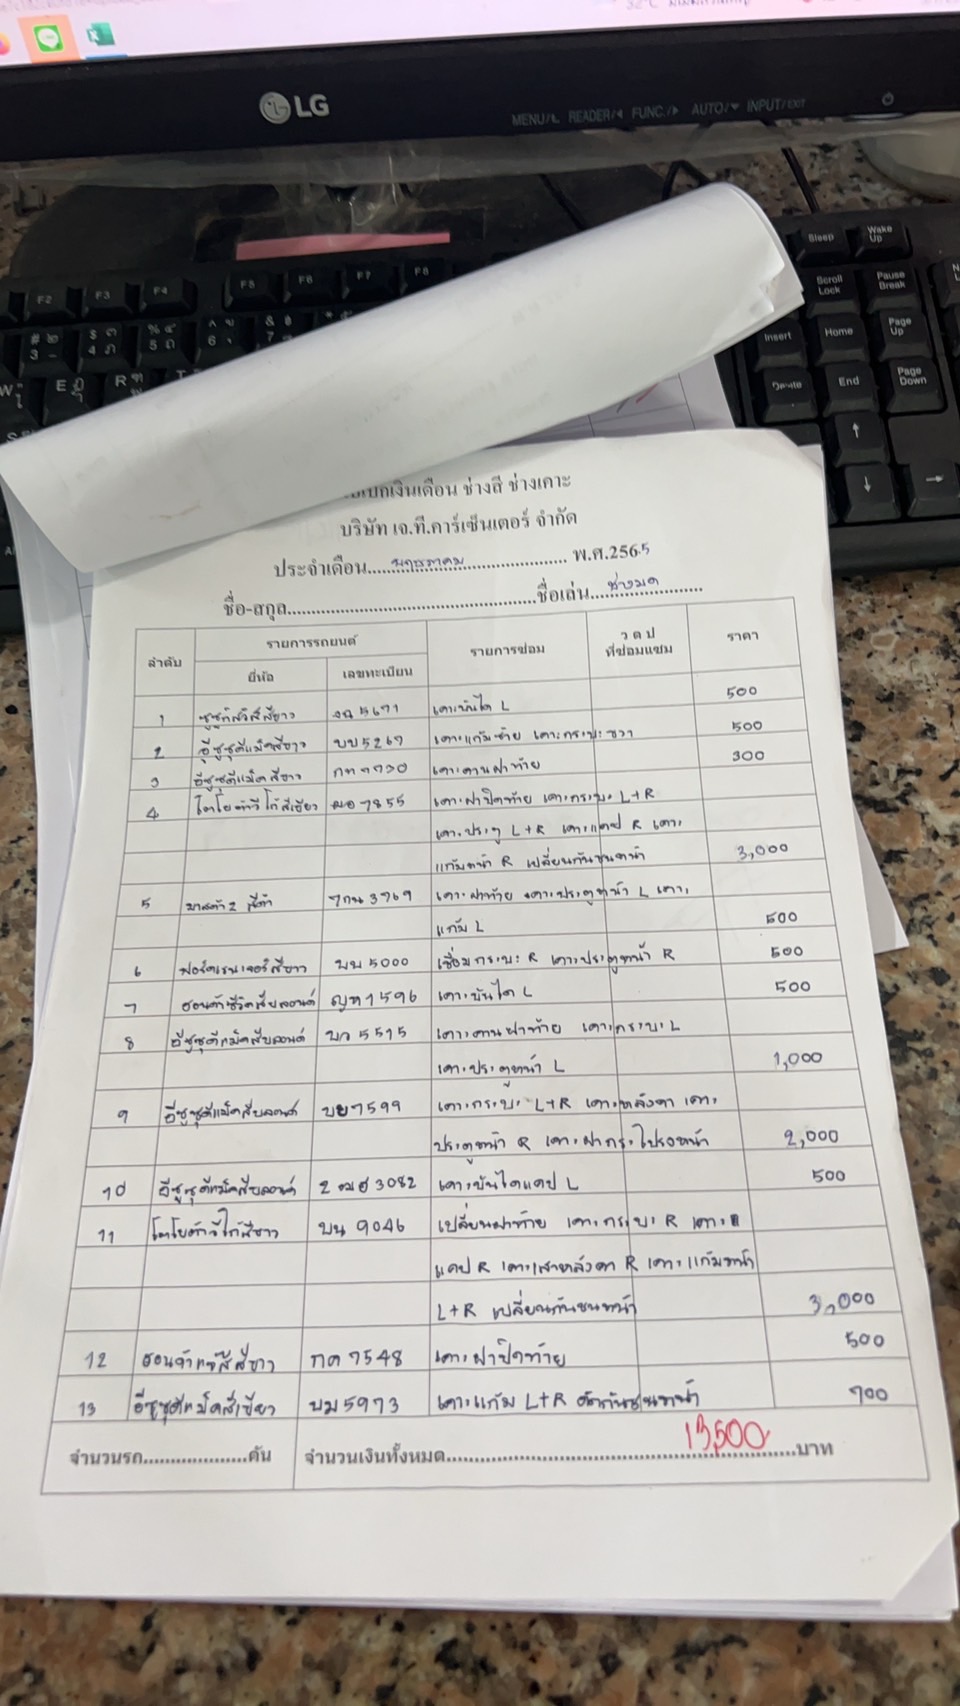 LG
MENU/ READER/ FUNC./ AUTO/ INPUT/EXIT
F2 F3 F4 F5 F6 F7 F8
Sleep Wake Up
Scroll Lock Pause Break
Insert Home Page Up
End Page Down
เบิกเงินเดือน ช่างสี ช่างเคาะ
บริษัท เจ.ที.คาร์เซ็นเตอร์ จำกัด
ประจำเดือน พฤษภาคม พ.ศ.2565
ชื่อ-สกุล ชื่อเล่น ช่างมด
ลำดับ รายการรถยนต์ รายการซ่อม ว ด ป ที่ซ่อมแซม ราคา
ยี่ห้อ เลขทะเบียน
1 ซูซูกิสวิสสีขาว 5671 เคาะบันได L 500
2 อีซูซุดีแม็คสีขาว บบ 5269 เคาะแก้มซ้าย เคาะกระบะขวา 500
3 อีซูซุดีแม็คสีขาว เคาะคานฝาท้าย 300
4 โตโยต้าวีโก้สีเขียว 7855 เคาะฝาปิดท้าย เคาะกระบะ L+R
เคาะประตู L+R เคาะแคป R เคาะ
แก้มหน้า R เปลี่ยนกันชนหน้า 3,000
5 มาสด้า 2 สีดำ 7กน 3769 เคาะฝาท้าย เคาะประตูหน้า L เคาะ
แก้ม L 500
6 ฟอร์ดเรนเจอร์สีขาว บบ 5000 เชื่อมกระบะ R เคาะประตูหน้า R 500
7 ฮอนด้าซีวิคสีบลอนด์ ญห 1596 เคาะบันได L 500
8 อีซูซุดีแม็คสีบลอนด์ บว 5515 เคาะคานฝาท้าย เคาะกระบะ L
เคาะประตูหน้า L 1,000
9 อีซูซุดีแม็คสีบลอนด์ บย 7599 เคาะกระบะ L+R เคาะหลังคา เคาะ
ประตูหน้า R เคาะฝากระโปรงหน้า 2,000
10 อีซูซุดีแม็คสีบลอนด์ 3082 เคาะบันไดแคป L 500
11 โตโยต้าวีโก้สีขาว บน 9046 เปลี่ยนฝาท้าย เคาะกระบะ R เคาะ
แคป R เคาะเสาหลังคา R เคาะแก้มหน้า
L+R เปลี่ยนกันชนหน้า 3,000
12 ฮอนด้าแจ๊สสีขาว กด 7548 เคาะฝาปิดท้าย 500
13 อีซูซุดีแม็คสีเขียว บม 5973 เคาะแก้ม L+R ดัดกันชนหน้า 700
จำนวนรถ คัน จำนวนเงินทั้งหมด 13,500 บาท